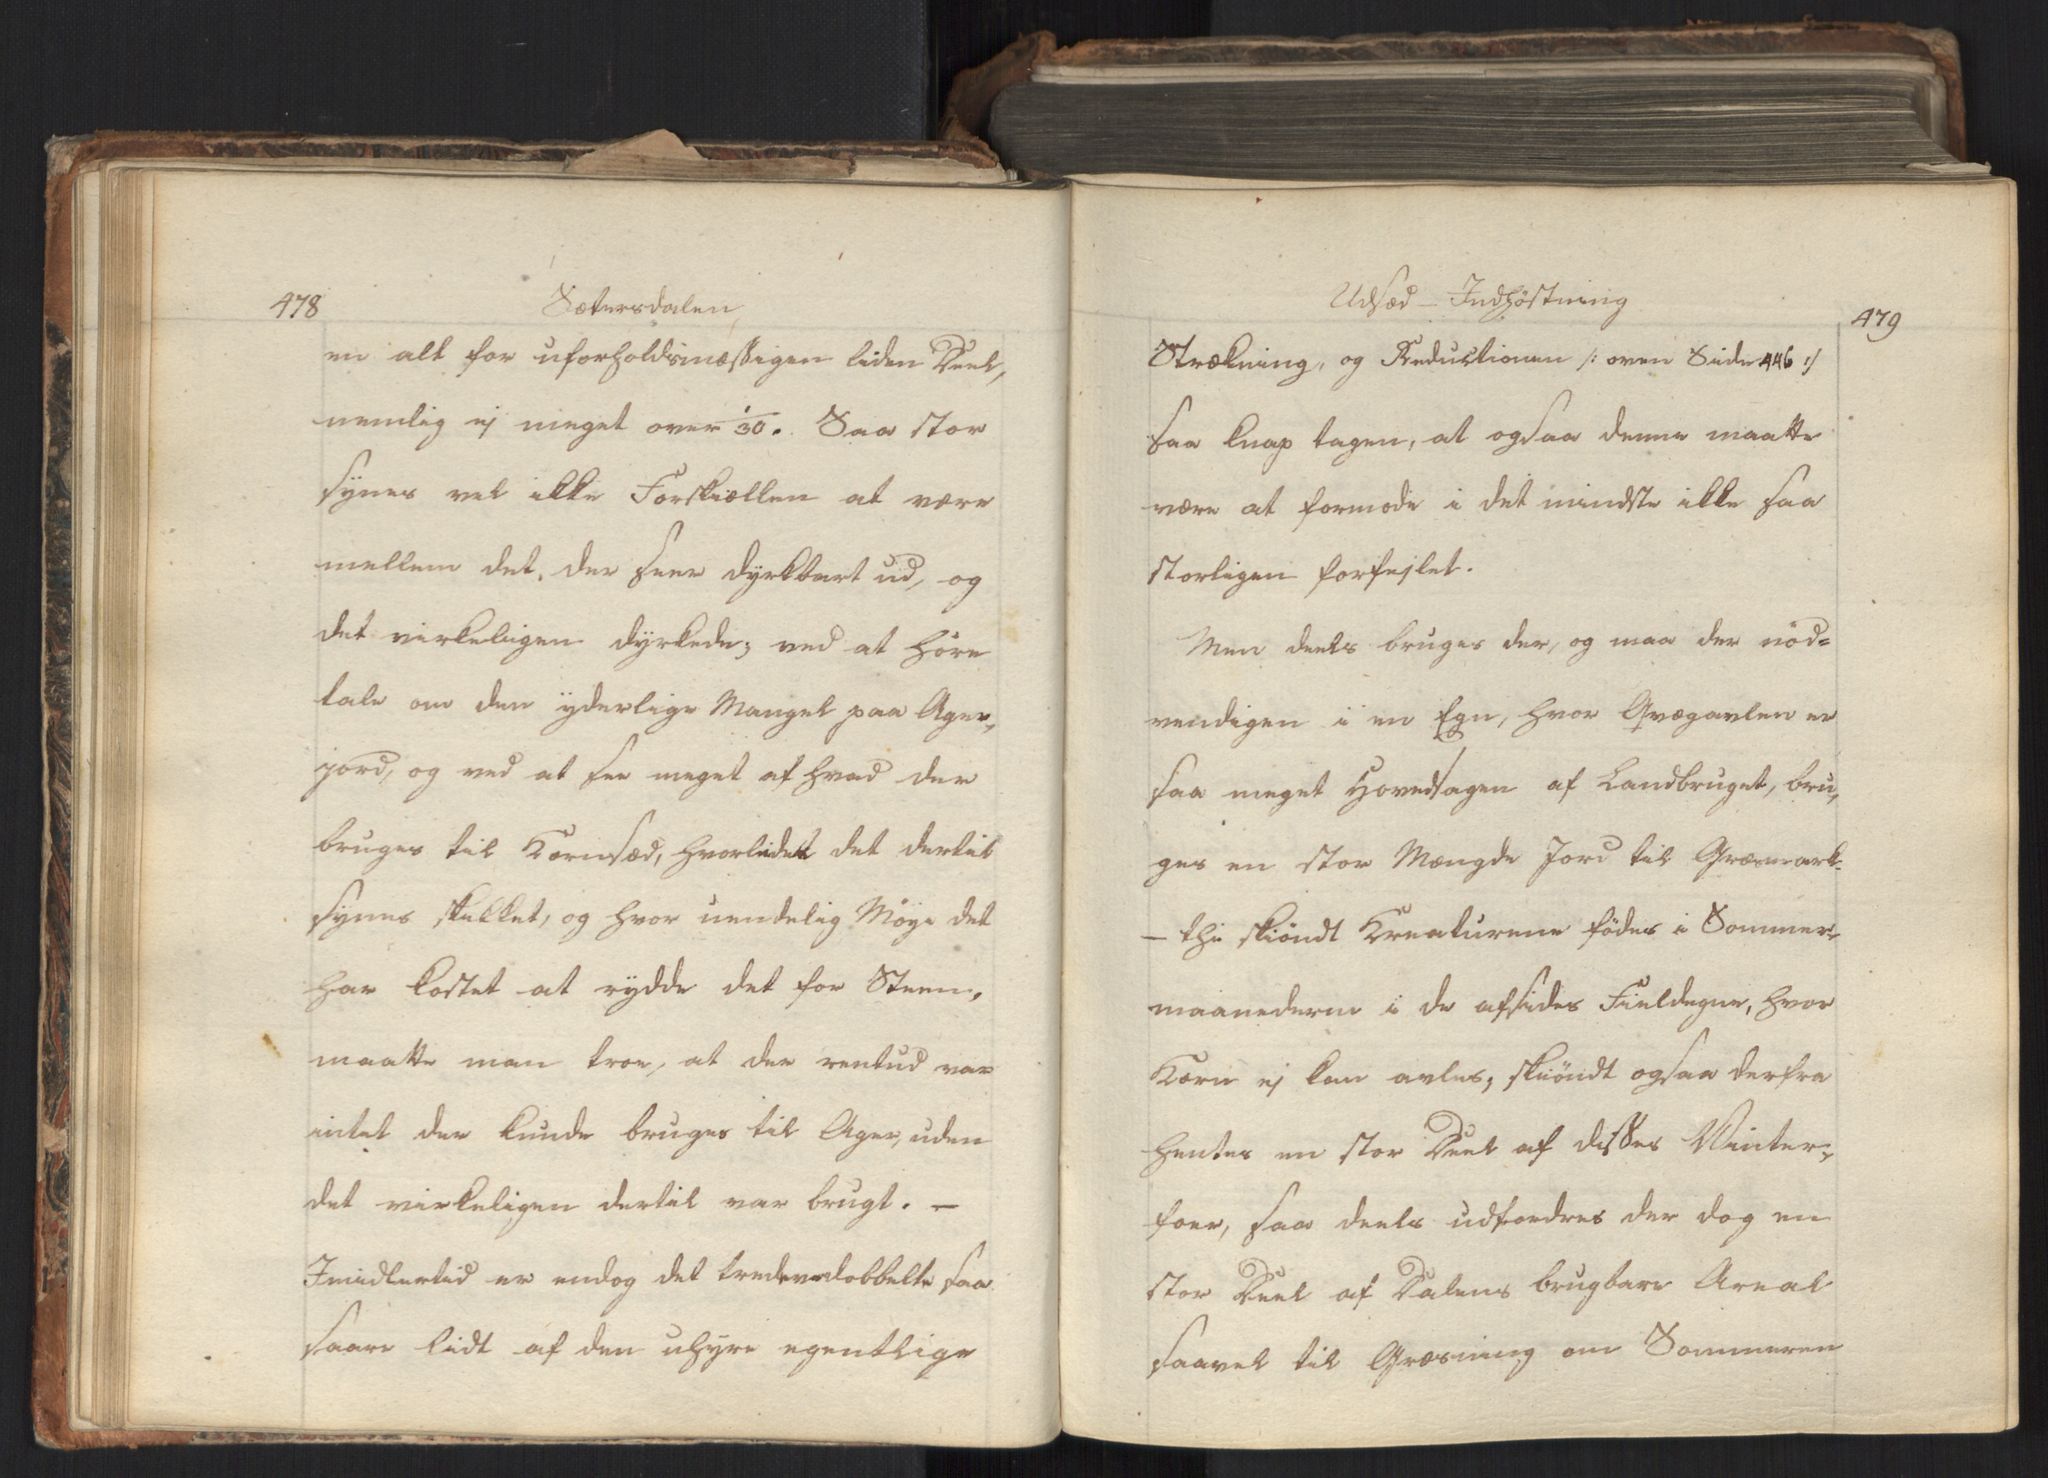 478
Sætersdalen
en alt for uforholdsmæssigen liden Deel,
nemlig ej meget over 1/30. Saa stor
synes vel ikke Forskiællen at være
mellem det, der seer dyrkbart ud, og
det virkeligen dyrkede; ved at høre
tale om den yderlige Mangel paa Ager„
jord, og ved at see meget af hvad der
bruges til Kornsæd, hvorlidet det dertil
synes skikket, og hvor uendelig Møye det
har kostet at rydde det for Steen,
maatte man troe, at der rentud var
intet der kunde bruges til Ager, uden
det virkeligen dertil var brugt. —
Imidlertid er endog det tredevedobbelte saa
saare lidt af den uhyre egentlige
Udsæd – Indhöstning
479
Strækning, og Reductionen /: oven Side 446 :/
saa knap tagen, at ogsaa denne maatte
være at formode i det mindste ikke saa
storligen forfejlet.
Men deels bruges der, og maa der nöd=
vendigen i en Egn, hvor Qvægavlen er
saa meget Hovedsagen af Landbruget, bru„
ges en stor Mængde Jord til Græsmark
— thi skiöndt Kreaturene födes i Sommer„
maanederne i de afsides Fieldegne, hvor
Korn ej kan avles; skiöndt ogsaa derfra
hentes en stor Deel af disses Vinter„
foer, saa deels udfordres der dog en
stor Deel af Dalens brugbare Areal
saavel til Græsning om Sommeren